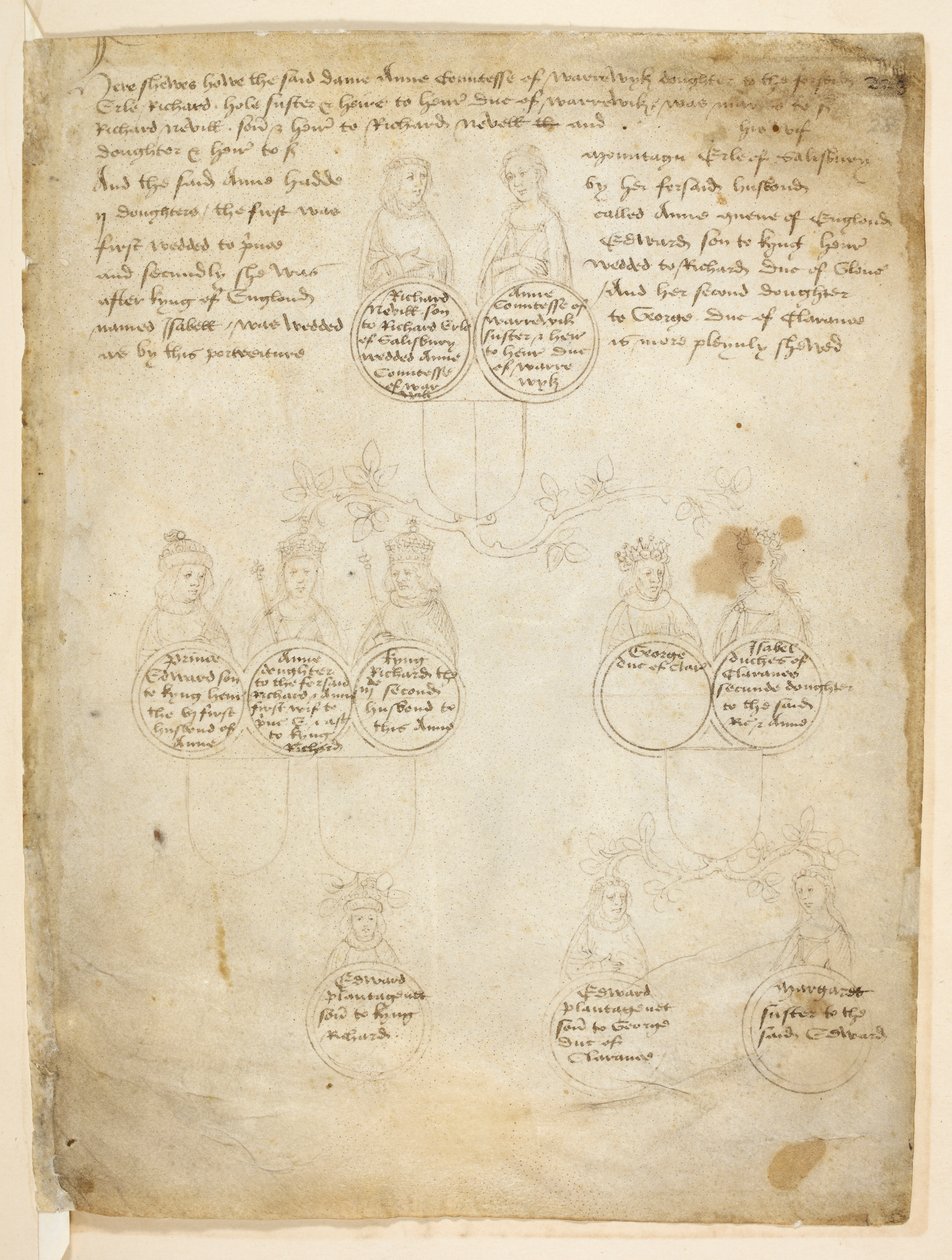 Here shewes howe the said dame Anne Countesse of warrewyk doughter to the forsaid
Erle Richard . hole suster & heire to henr duc of warrewik / was maried to s
Richard nevill . son & heir to Richard nevell and his wif
doughter & heir to s mountagu Erle of Salisbury
And the said Anne hadde by her forsaid husbond
ij doughters / the first was called Anne quene of Englond
first wedded to prince Edward son to kyng henr
and secundly she was wedded to Richard duc of Glouc
after kyng of Englond / And her second doughter
named Isabell / was wedded to George duc of Clarance
as by this portreiture is more pleynly shewed
Richard
Nevill son
to Richard Erle
of Salisbury
wedded Anne
Countesse
of war
wik
Anne
Countesse of
warrewik
suster & heir
to henr duc
of warre
wyk
Prince
Edward son
to kyng henr
the vj first
husbond of
Anne
Anne
doughter
to the forsaid
Richard & Anne
first wif to
prince E & last
to kyng
Richard
kyng
Richard the
iij second
husbond to
this Anne
George
duc of Clar
Isabel
duches of
Clarance
secunde doughter
to the said
Ric & Anne
Edward
plantagenet
son to kyng
Richard .
Edward
plantagenet
son to George
duc of
Clarance
Margaret
suster to the
said Edward